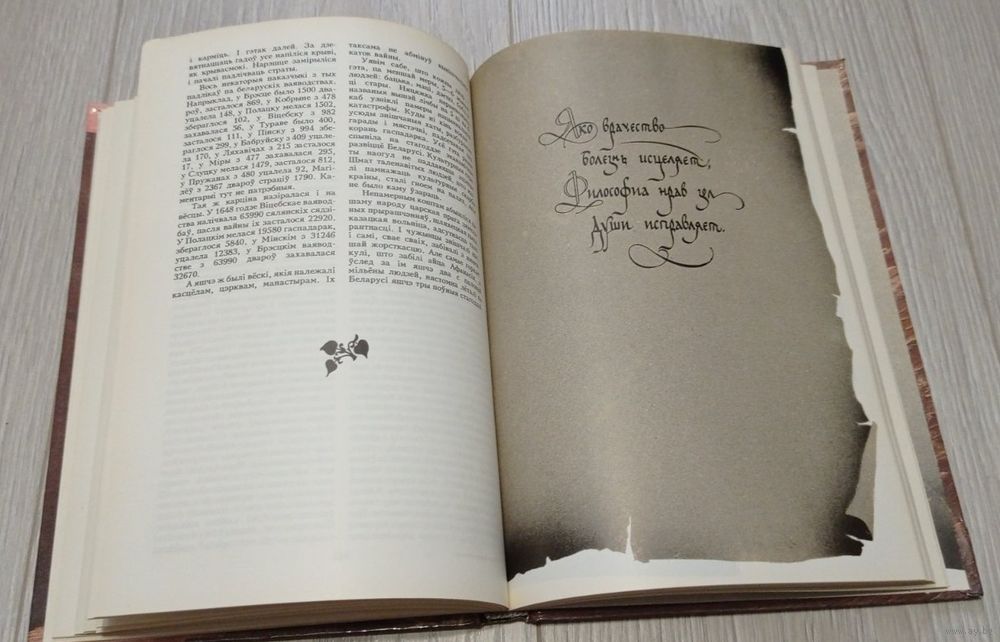 і карміць. І гэтак далей. За дзе-
вятнаццаць гадоў усе напіліся крыві,
як крывасмокі. Нарэшце замірыліся
і пачалі падлічваць страты.
Вось некаторыя паказчыкі з тых
падлікаў па беларускіх ваяводствах.
Напрыклад, у Брэсце было 1500 два-
роў, засталося 869, у Кобрыне з 478
уцалела 148, у Полацку мелася 1502,
зберагlося 102, у Віцебску з 982
захавалася 56, у Тураве было 400,
засталося 111, у Пінску з 994 збе-
раглося 299, у Бабруйску з 409 уцале-
ла 170, у Ляхавічах з 215 засталося
17, у Міры з 477 захавалася 295,
у Слуцку мелася 1479, засталося 812,
у Пружанах з 480 уцалела 92, Магі-
лёў з 2367 двароў страціў 1790. Ка-
ментарыі тут не патрэбныя.
Тая ж карціна назіралася і на
вёсцы. У 1648 годзе Віцебскае ваявод-
ства налічвала 65990 сялянскіх сядзі-
баў, пасля вайны іх засталося 22920,
У Полацкім мелася 19580 гаспадарак,
збераглося 5840, у Мінскім з 31246
уцалела 12383, у Брэсцкім ваявод-
стве з 63990 двароў захавалася
32670.
А яшчэ ж былі вёскі, якія належалі
касцёлам, цэрквам, манастырам. Іх
таксама не абмінуў
каток вайны.
Уявім сабе, што
гэта, па меншай меры, 5—6
людзей: бацька, маці, дзеці,
ці стары. Няцяжка
названыя вышэй лічбы на 5
каб уявілі памеры
катастрофы. Куды ні
усюды знішчаныя хаты,
гарады і мястэчкі,
корань гаспадарка. Усё гэта
спыніла на стагоддзе
развіццё Беларусі.
ты наогул не падаюцца
Шмат таленавітых людзей,
лі памнажаць культурны
краіны, сталі гноем на палях,
не было каму ўзараць.
Непамерным коштам
шаму народу царская
ных прырашчэнняў,
казацкая вольніца,
рантнасці. І чужынцы
і самі, свае сваіх, забівалі
шай жорсткасцю. Але самае
кулі, што забілі айца
ўслед за ім яшчэ два з паловай
мільёны людзей, вястомна
Беларусі яшчэ тры поўныя стагоддзі
Яко врачество
болезнь исцеляет,
Философиа нрав зл
души исправляет.
www.ay.by